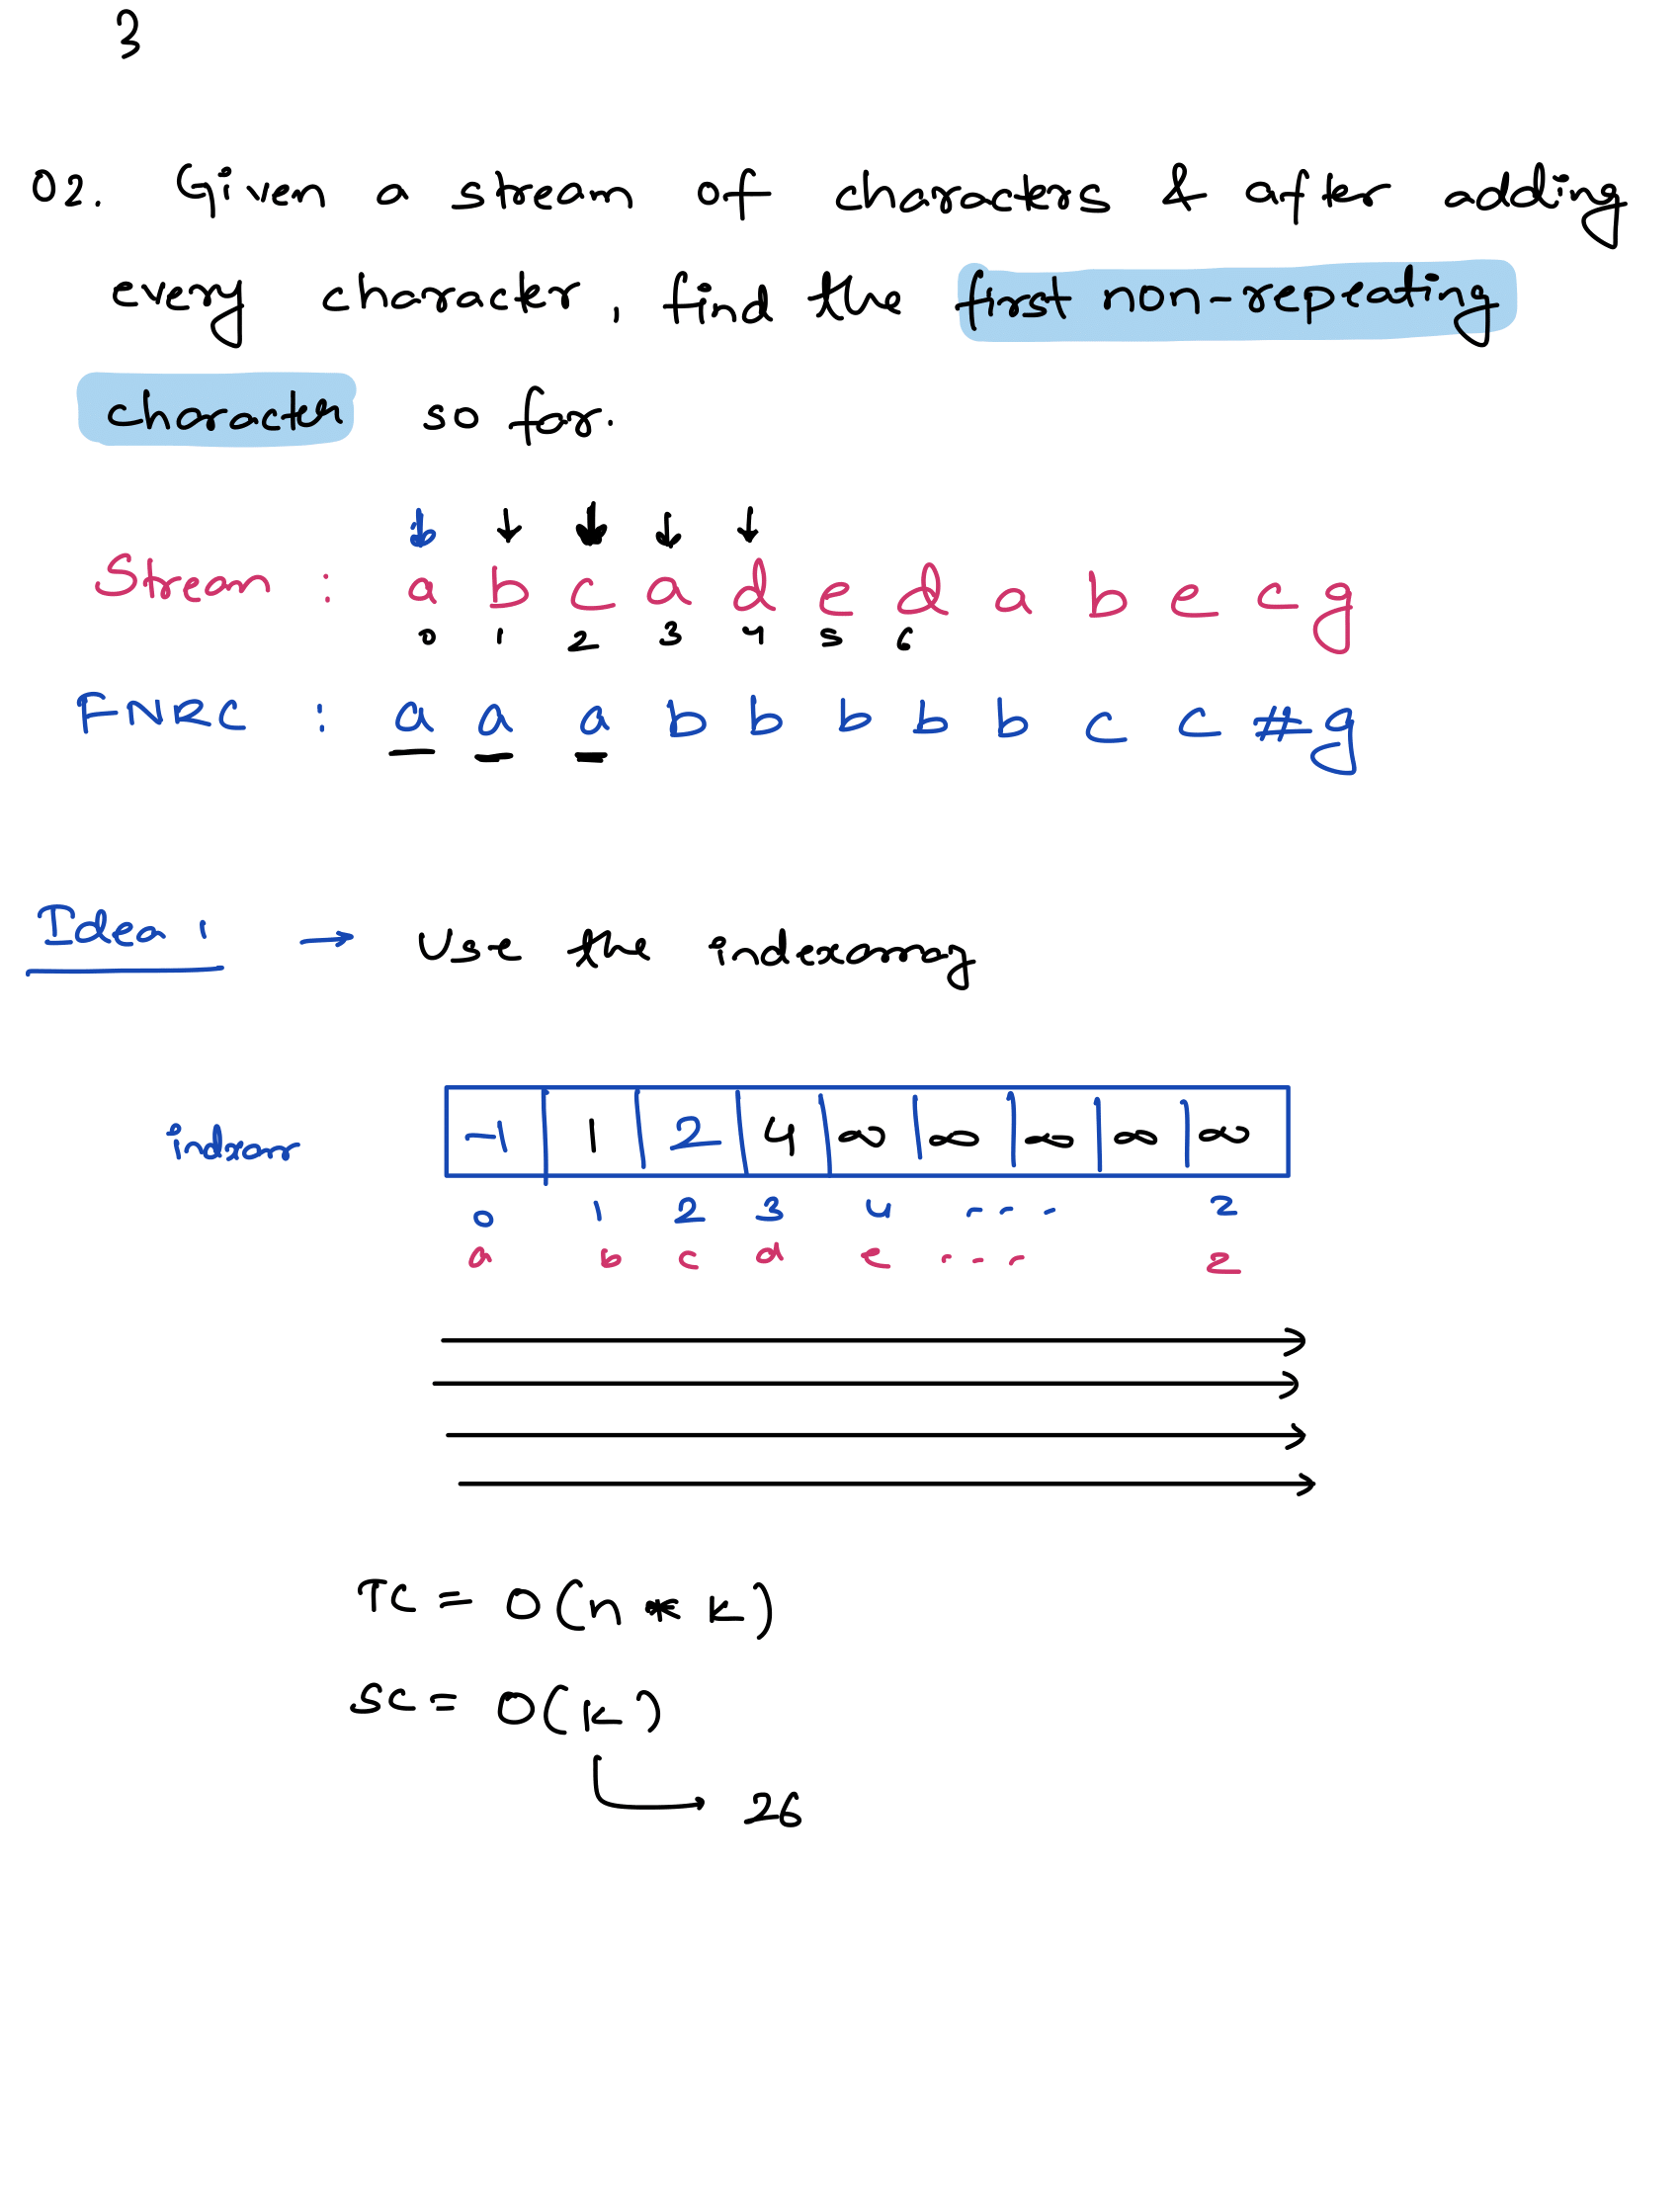 3
02. Given a stream of characters & after adding
every character, find the first non-repeating
character so far.
Stream : a b c a d e d a b e c g
0 1 2 3 4 5 6
FNRC : a a a b b b b b c c # g
Idea 1 → Use the indexarray
-1 1 2 4 ∞ ∞ ∞ ∞ ∞
0 1 2 3 4 ... 2
a b c d e ... z
TC = O(n * k)
SC = O(k)
26